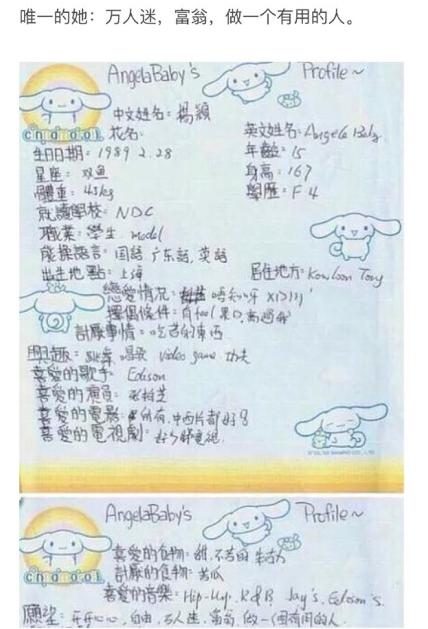 唯一的她：万人迷，富翁，做一个有用的人。
AngelaBaby's Profile~
中文姓名: 楊穎
cinnamoroll
花名: 英文姓名: Angela Baby
生日日期: 1989 2.28 年齡: 15
星座: 双鱼 身高: 167
體重: 43kg 學歷: F 4
就讀學校: NDC
職業: 學生. model
能操語言: 国語, 广东話, 英語
出生地點: 上海 居住地方: Kowloon Tong
戀愛情况: 唔知呀
擇偶條件: 有feel
討厭事情: 吃苦的東西
興趣: 跳舞 唱歌 video game
喜愛的歌手 Edison
喜愛的演員: 张柏芝
喜愛的電影: 所有, 中西片都好
喜愛的電視劇:
AngelaBaby's Profile~
喜爱的食物: 甜, 不苦的 朱古力
cinnamoroll
討厭的食物: 苦瓜
喜爱的音樂: Hip-Hop, R&B Jay's, Edison's.
願望: 开开心心, 自由, 万人迷, 富翁, 做一個有用的人.